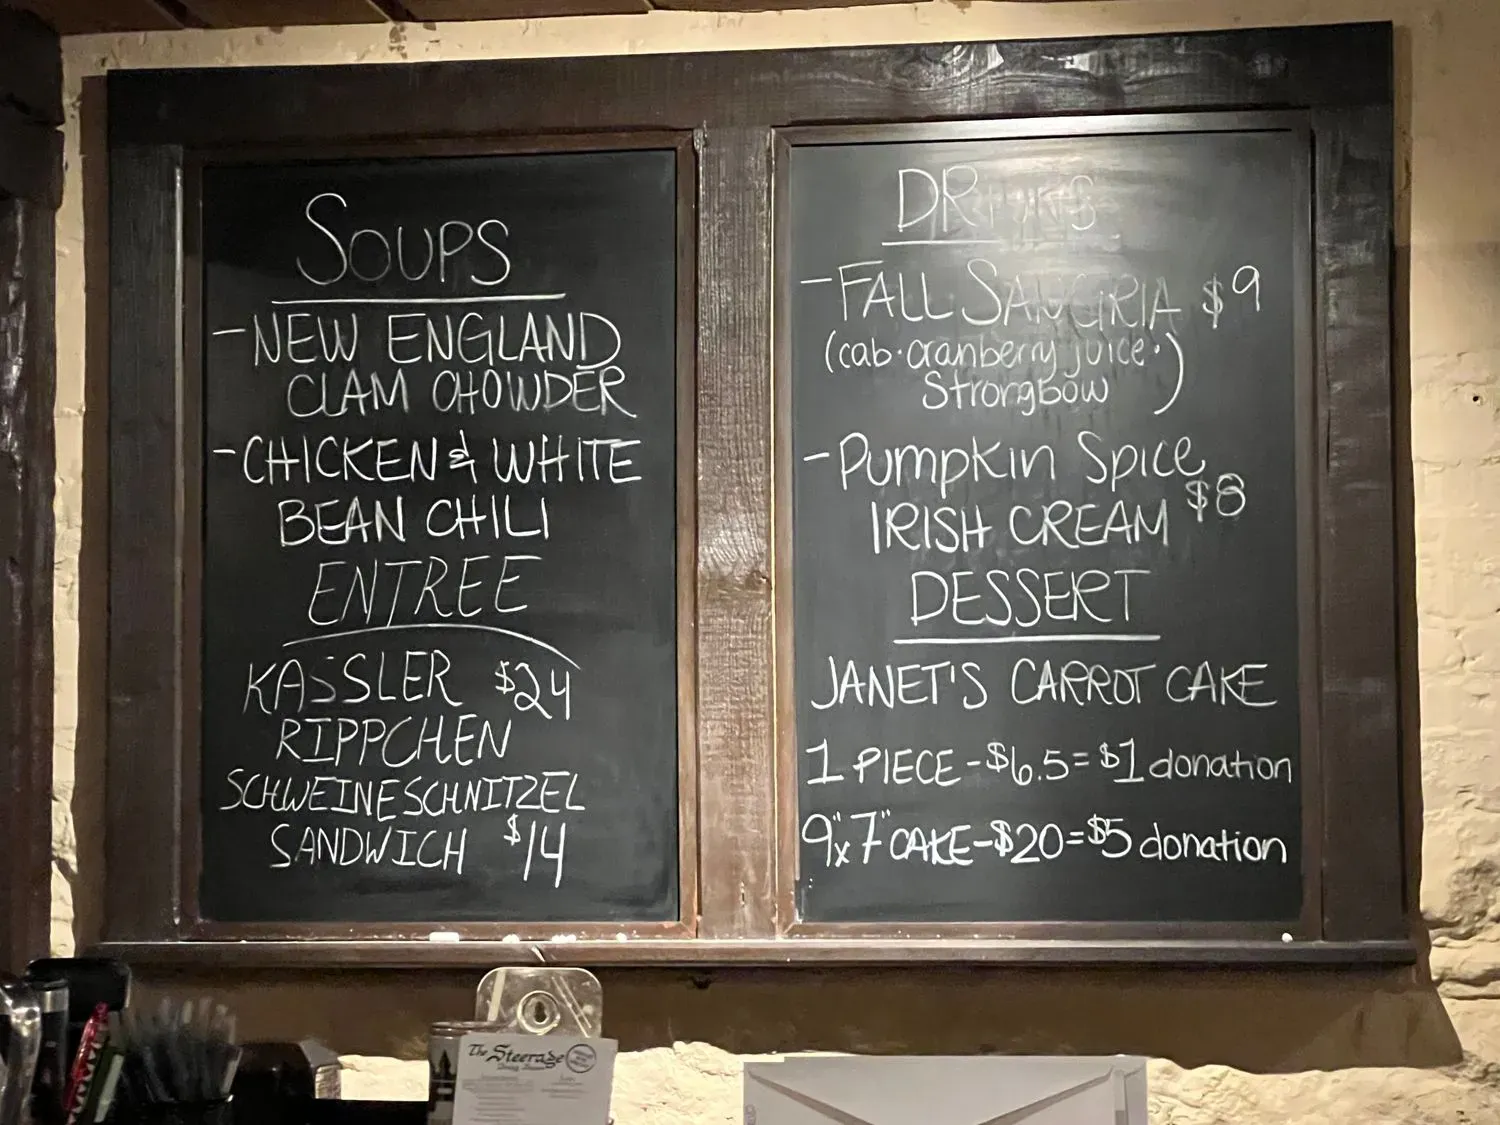 SOUPS
-NEW ENGLAND
CLAM CHOWDER
-CHICKEN & WHITE
BEAN CHILI
ENTREE
KASSLER $24
RIPPCHEN
SCHWEINESCHNITZEL
SANDWICH $14
DRINKS
-FALL SANGRIA $9
(cab·cranberry juice·
Strongbow)
-Pumpkin Spice
IRISH CREAM $8
DESSERT
JANET'S CARROT CAKE
1 PIECE-$6.5=$1 donation
9"x7" CAKE-$20=$5 donation
The Steerage